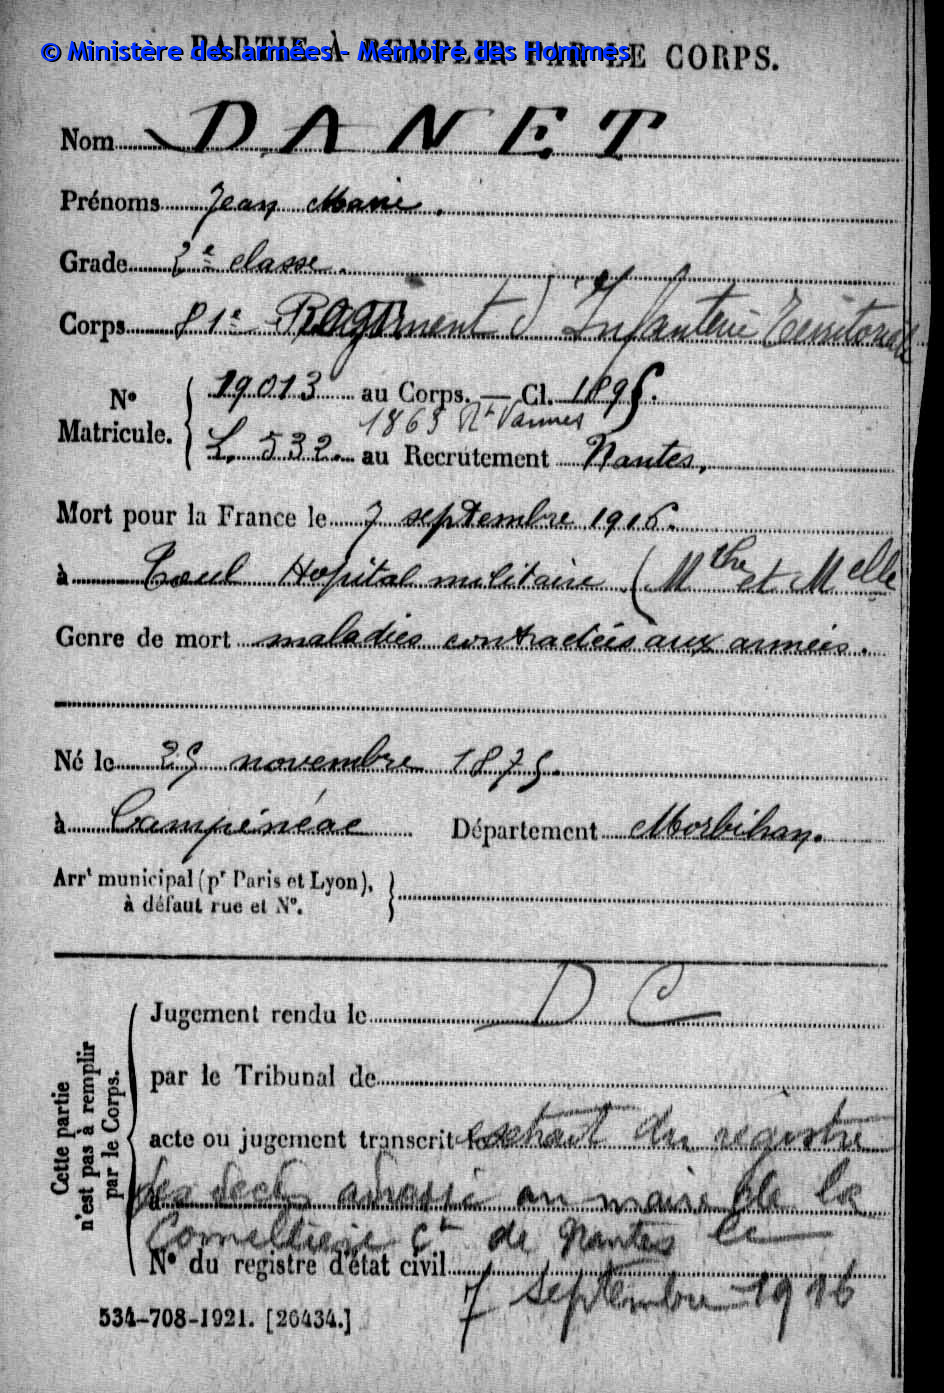 PARTIE À REMPLIR PAR LE CORPS.
© Ministère des armées - Mémoire des Hommes
Nom DANET
Prénoms Jean Marie.
Grade 2e classe.
Corps 81e Régiment d'Infanterie Territoriale
N° Matricule. { 19013 au Corps. — Cl. 1895.
1863 Rt Vannes
L. 532. au Recrutement Nantes.
Mort pour la France le 7 septembre 1916.
à Toul Hopital militaire (Mthe et Melle
Genre de mort maladies contractées aux armées.
Né le 25 novembre 1875.
à Campénéac Département Morbihan.
Arrt municipal (pr Paris et Lyon),
à défaut rue et N°.
Cette partie n'est pas à remplir par le Corps.
Jugement rendu le D C
par le Tribunal de
acte ou jugement transcrit le extrait du registre
des décès au maire de la
Ct de Nantes le
N° du registre d'état civil
7 septembre 1916
534-708-1921. [26434.]